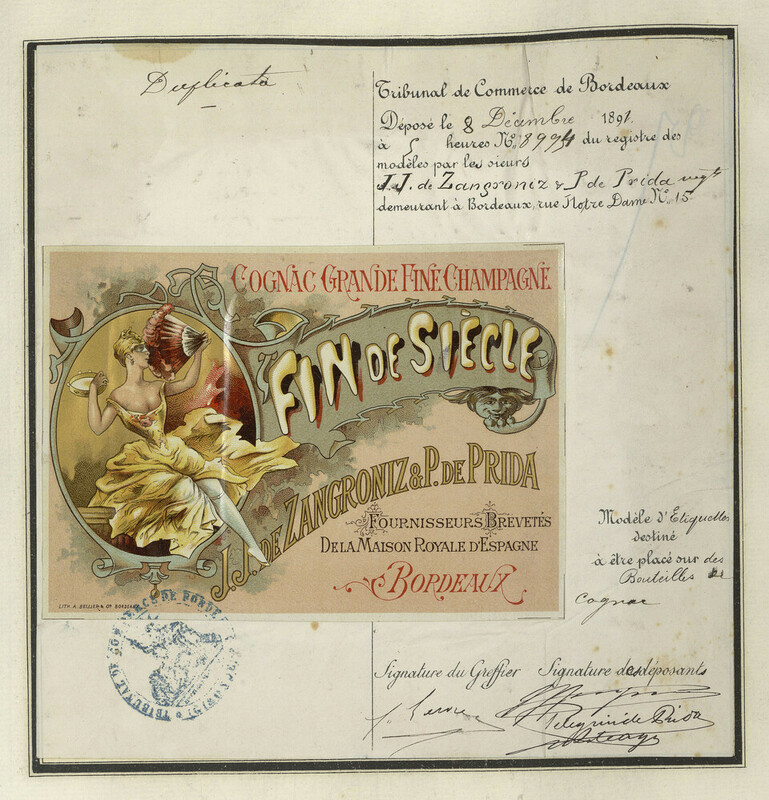 Duplicata
Tribunal de Commerce de Bordeaux
Déposé le 8 Décembre 1891
à 5 heures Nº 8994 du registre des
modèles par les sieurs
J.J. de Zangroniz & P. de Prida
demeurant à Bordeaux, rue Notre Dame Nº 15
COGNAC GRANDE FINE CHAMPAGNE
FIN DE SIÈCLE
J.J. DE ZANGRONIZ & P. DE PRIDA
FOURNISSEURS BREVETÉS
DE LA MAISON ROYALE D'ESPAGNE
BORDEAUX
LITH. A. BELLIER & Cº BORDEAUX
Modèle d'Etiquettes
destiné
à être placé sur des
Bouteilles de
Cognac
TRIBUNAL DE COMMERCE DE BORDEAUX
Signature du Greffier Signature des déposants
Pelegrin de Prida